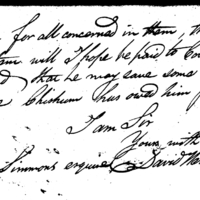 for all concerned in them, th
will I hope be paid to Co
that he may save some
Chishum thus owed him
I am Sir
Yours with
Simmons esquire David